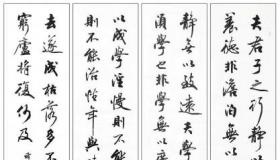 夫君子之行靜
養德非澹泊無以
靜無以致遠夫學
須學也非學無以
以成學淫慢則不
則不能治性年與
去遂成枯落多不
窮廬將復何及